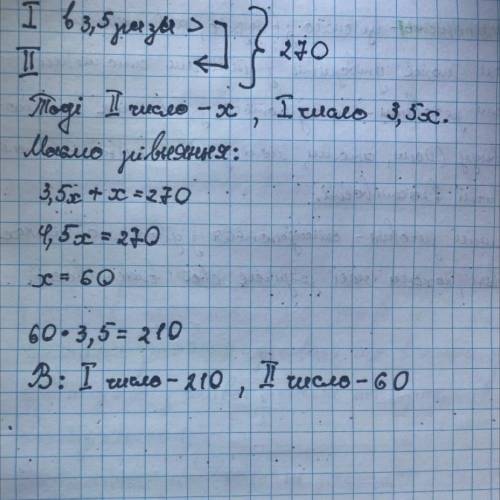 I в 3,5 рази >
II
270
Тоді II число - x, I число 3,5x.
Маємо рівняння:
3,5x + x = 270
4,5x = 270
x = 60
60 • 3,5 = 210
В: I число - 210, II число - 60